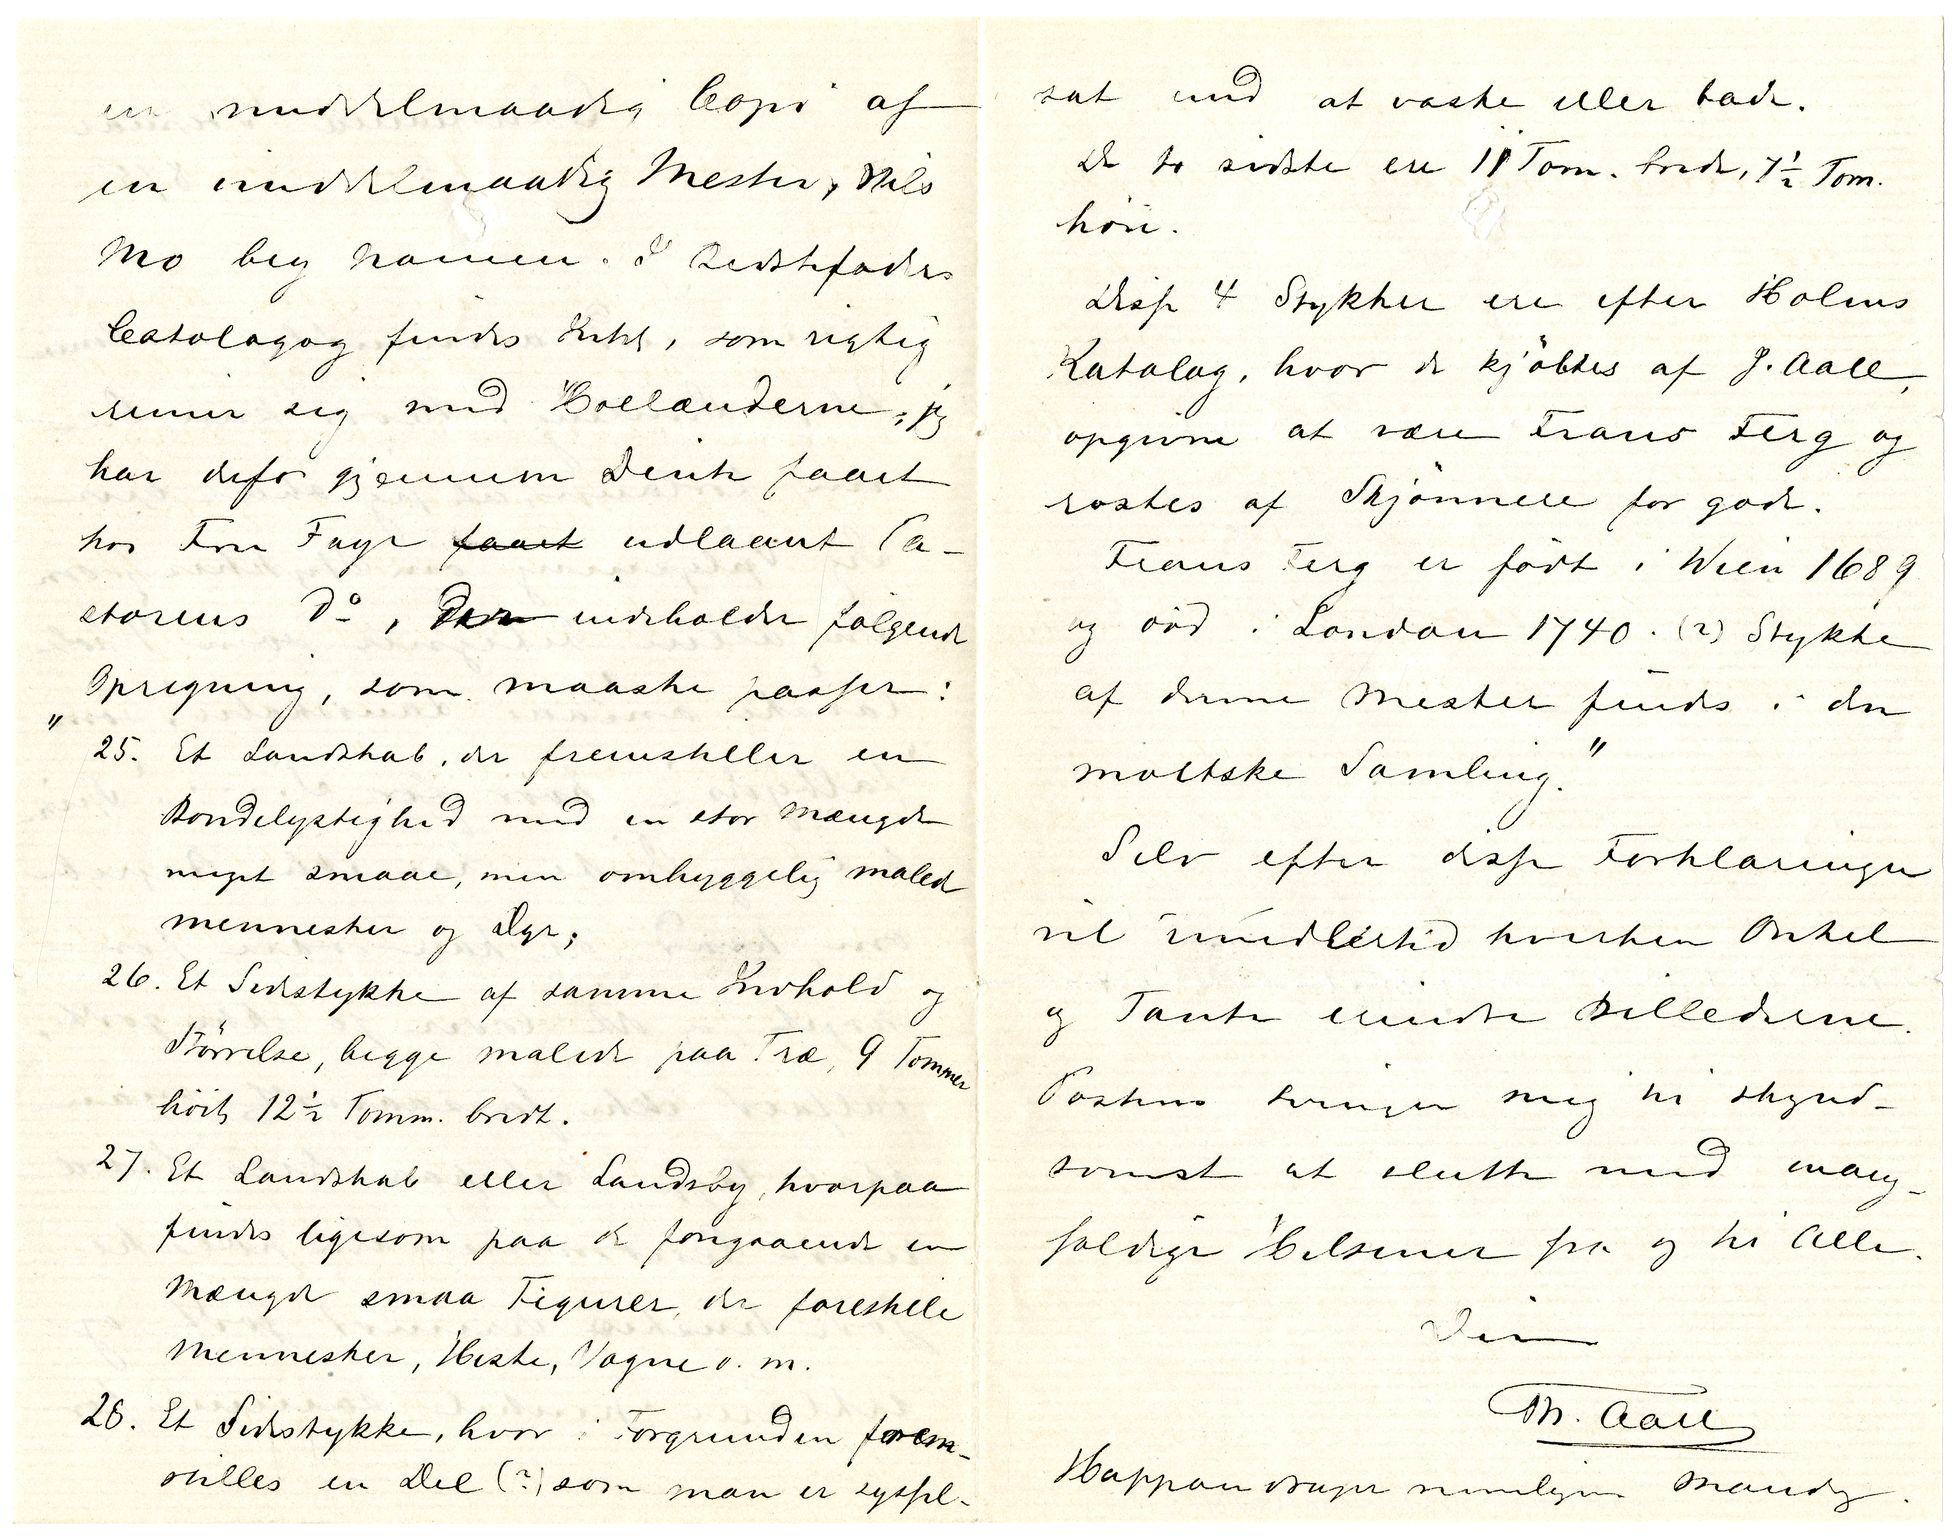 en middelmaadig Copi af
en middelmaadig Mester, Nils
Mo beg Navnen. I Bedstefaders
Catalogog findes Intet, som rigtig
rimer sig med Hollænderne; jeg
har derfor gjennem Dente faaet
hos Fru Faye faaet udlaant Ca-
storens Do, Den indeholder følgende
Opregning, som maaske passer:
"
25. Et Landskab, der fremstiller en
Bondelystighed med en stor Mængde
meget smaae, men omhyggelig malede
Mennesker og Dyr;
26. Et Sidestykke af samme Indhold og
Størrelse, begge malede paa Træ, 9 Tommer
høit, 12½ Tomm. bredt.
27. Et Landskab eller Landsby, hvorpaa
findes ligesom paa de forrgaaende en
Mængde smaa Figurer, der forestille
Mennesker, Heste, Vogne o. m.
28. Et Sidestykke, hvor i Forgrunden frem-
stilles en Del (?) som man er syssel-
sat med at vaske eller bade.
De to sidste ere 11 Tom. brede, 7½ Tom.
høie.
Disse 4 Stykker ere efter Holms
Katalog, hvor de kjöbtes af J. Aall,
opgivne at være Frans Ferg og
rostes af Skjönnere for gode.
Frans Ferg er födt i Wien 1689
og död i London 1740. (2) Stykke
af denne Mester findes i den
moltske Samling."
Selv efter disse Forklaringer
vil imidlertid hverken Onkel
og Tante erindre Billederne.
Posten tvinger mig til skynd-
somst at slutte med mang-
foldige Hilsener fra og til Alle.
Din
Th. Aall
Happan drager nemligen Mandag.